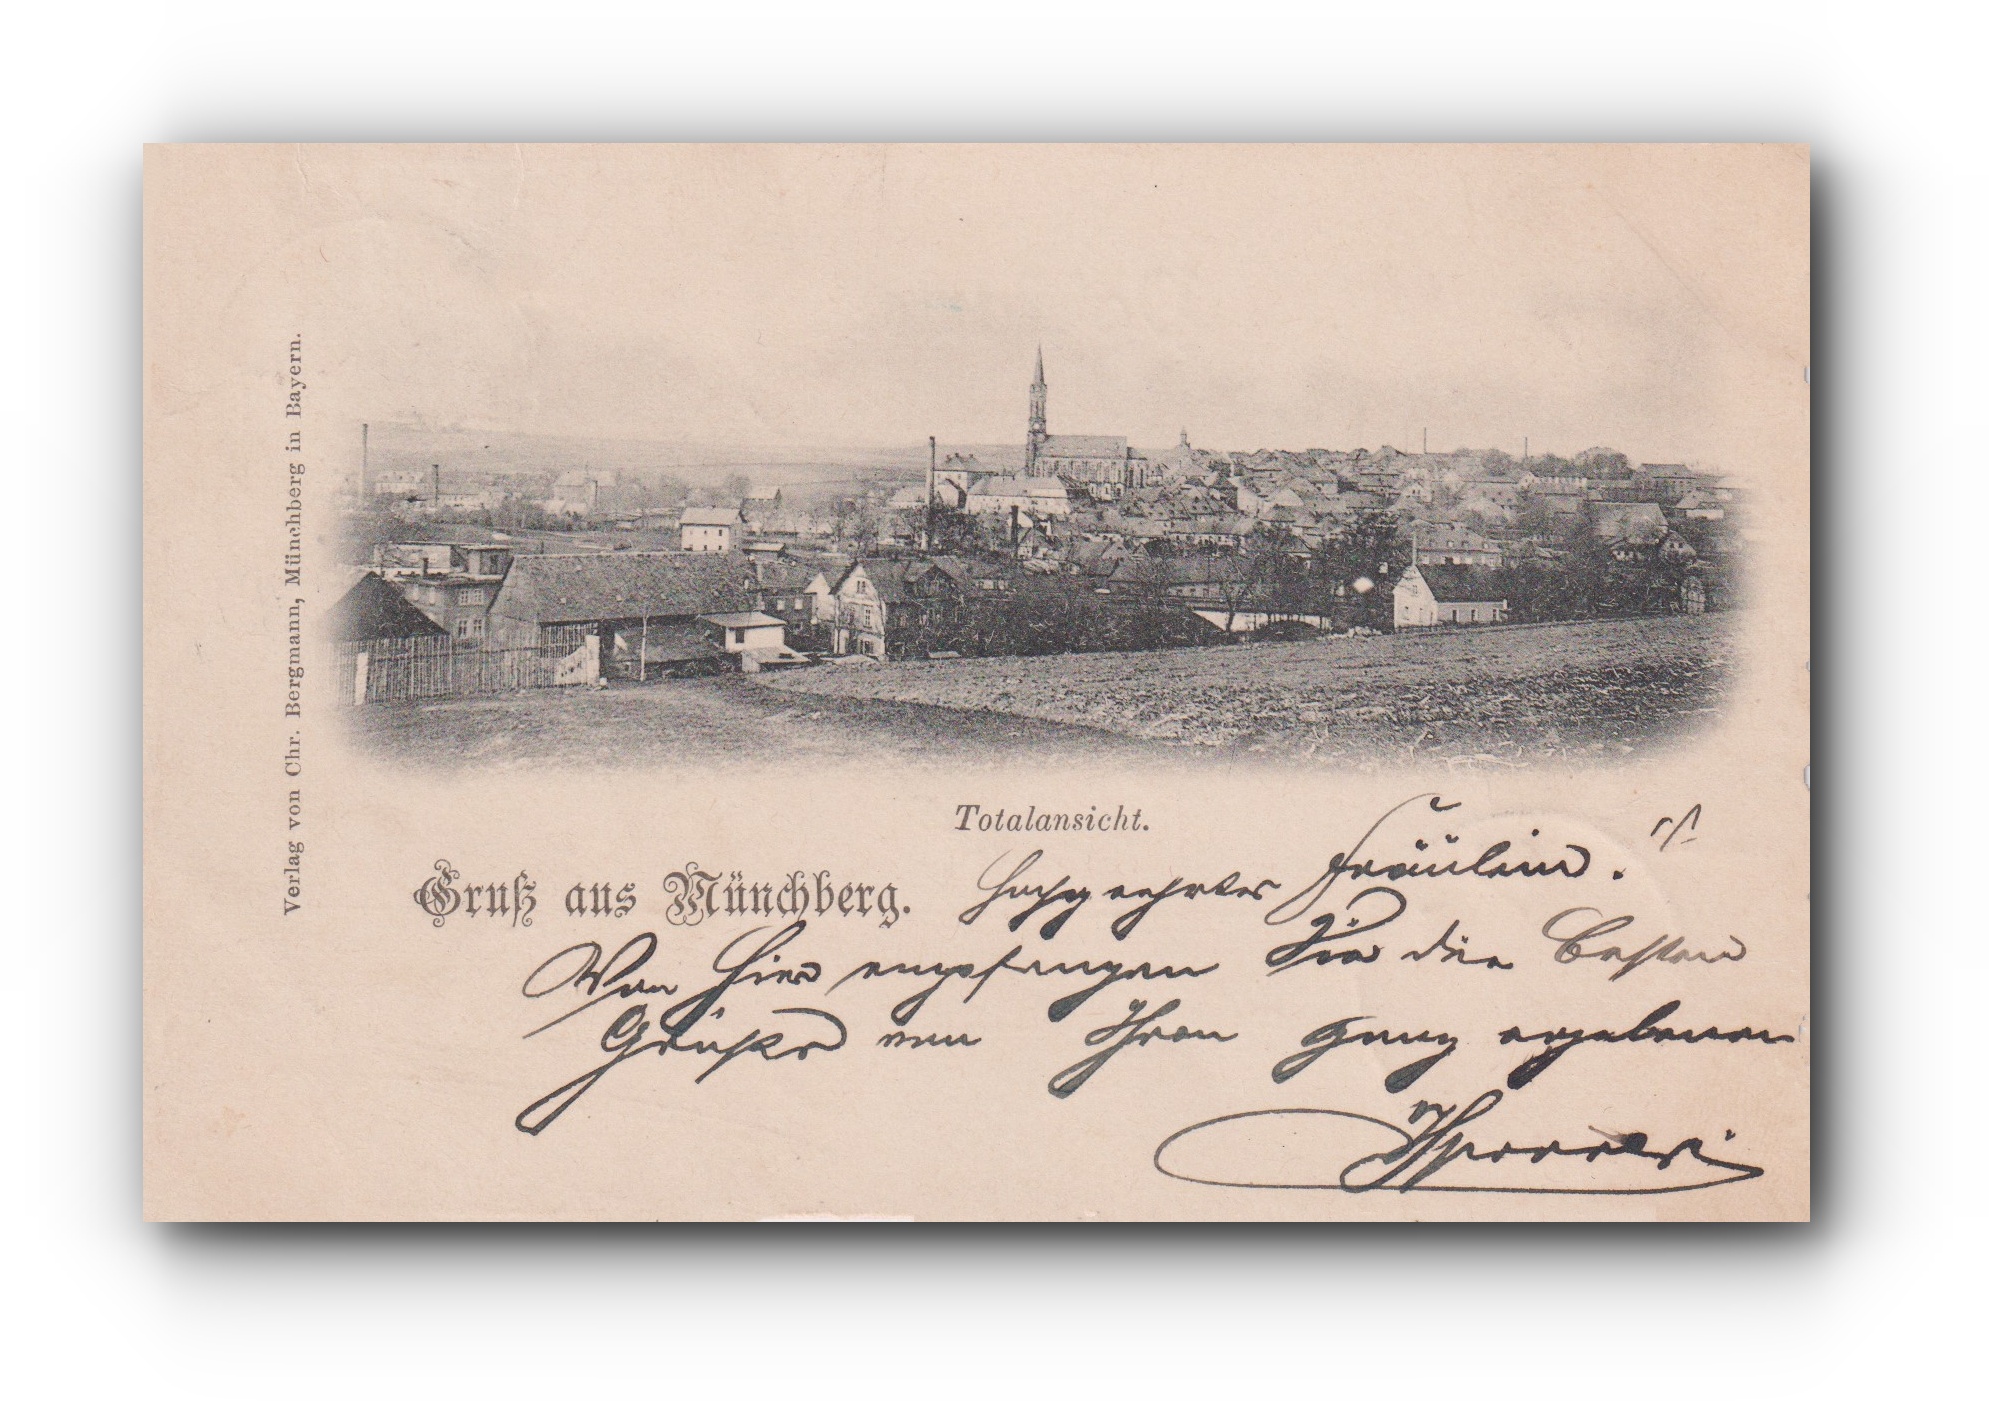 Verlag von Chr. Bergmann, Münchberg in Bayern.
Totalansicht.
Gruß aus Münchberg.
Hochgeehrtes Fräulein!
Von hier empfangen Sie die besten
Grüße von Ihrem ganz ergebenen